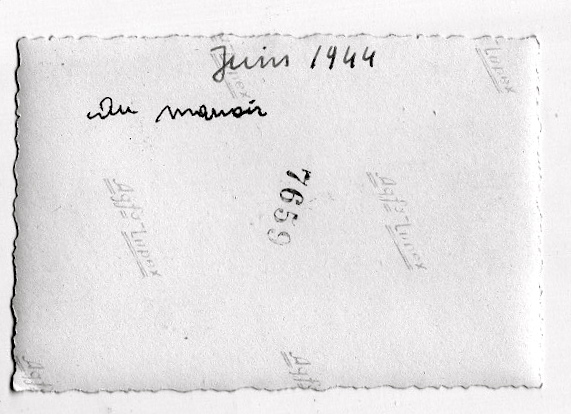 Juin 1944
Au manoir
7659
Lupex
Lupex
Agfa Lupex
Agfa Lupex
Agfa
Agfa